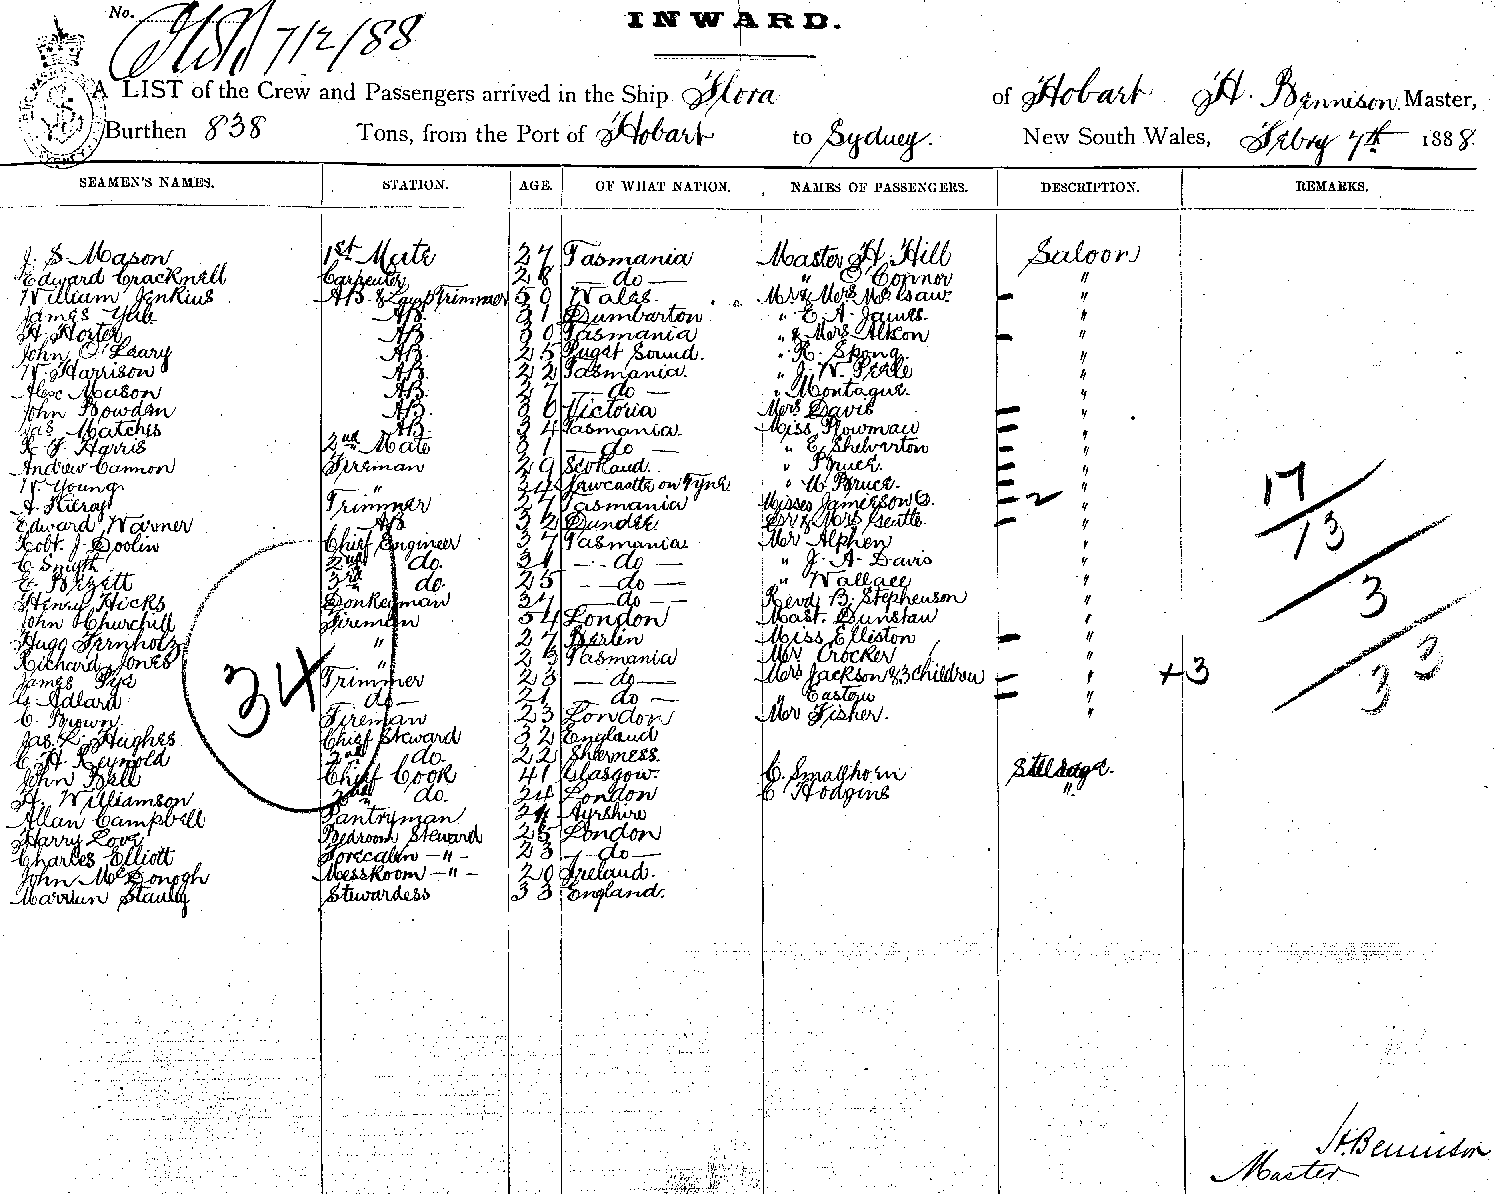 No.
7/2/88
INWARD.
A LIST of the Crew and Passengers arrived in the Ship Flora of Hobart H. Bennison Master,
Burthen 838 Tons, from the Port of Hobart to Sydney. New South Wales, Febry 7th 1888.
SEAMEN'S NAMES. STATION. AGE. OF WHAT NATION. NAMES OF PASSENGERS. DESCRIPTION. REMARKS.
J. S Mason 1st Mate 27 Tasmania Master H. Hill Saloon
Edward Cracknell Carpenter 28 — do — " O'Connor "
William Jenkins AB & Lamp Trimmer 50 Wales Mr & Mrs "
James AB. 31 Dumbarton " E. A. James "
H. AB. 30 Tasmania " & Mrs "
John O'Leary AB. 25 Puget Sound. " R. Spong "
W. Harrison AB. 22 Tasmania. " J. W. "
Alex Mason AB. 27 — do — " Montague. "
John Bowden AB. 30 Victoria Mrs Davis "
Jas Matches AB. 34 Tasmania. Miss Plowman "
R. J. Harris 2nd Mate 31 — do — " E. "
Andrew Cannon Fireman 29 Scotland. " Bruce. "
W. Young " Newcastle on Tyne " Bruce. "
A. Trimmer 27 Tasmania Misses 2 "
Edward Warner AB 32 Dundee Mr & Mrs "
Robt. J. Doolin Chief Engineer 37 Tasmania Mr Alphen "
C. Smyth 2nd do. 31 — do — " J. A. Davis "
E. 3rd do. 25 — do — " Wallace "
Henry Hicks Donkeyman 37 — do — Revd B. Stephenson "
John Churchill Fireman 54 London Mast. Dunstan "
Hugo Fernholz " 27 Berlin Miss Elliston "
Richard Jones " 23 Tasmania Mr Crocker "
James Pye Trimmer 23 — do — Mrs Jackson & 3 children " +3
G. Adlard — do — 21 — do — " Eastern "
C. Brown Fireman 23 London Mr Fisher. "
Jas. L. Hughes Chief Steward 32 England
C. H. Reynold 2nd do. 22 Sheerness.
John Bell Chief Cook 41 Glasgow. C. Smalhorn Steerage.
H. Williamson 2nd do. 24 London C Hodgins "
Allan Campbell Pantryman 24 Ayrshire
Harry Love Bedroom Steward 25 London
Charles Elliott Forecabin — " — 23 — do —
John McDonogh MessRoom — " — 20 Ireland.
Stewardess 33 England.
34
17
13
3
33
H. Bennison
Master